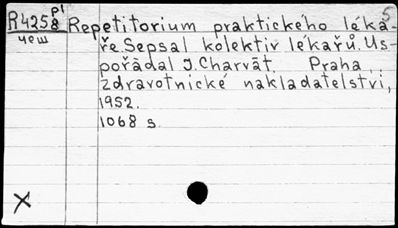 5
R4258 p1 Repetitorium praktického léka-
чеш ře Sepsal kolektiv lékařů. Us-
pořàdal J. Charvāt. Praha,
zdravotnické nakladatelstvi,
1952.
1068 s.
X